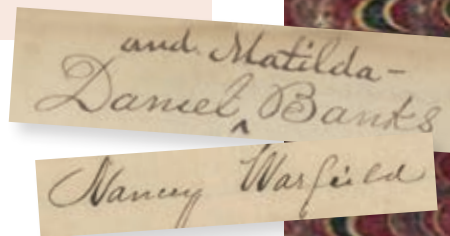 and Matilda-
Daniel ‸ Banks
Nancy Warfield